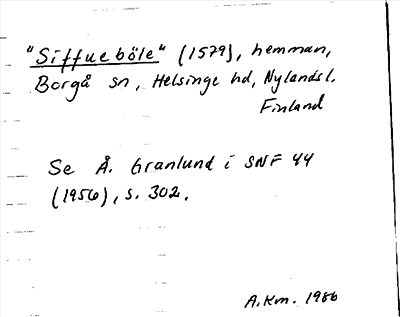 "Siffueböle" (1579), hemman,
Borgå sn, Helsinge hd, Nylandsl.
Finland
Se Å. Granlund i SNF 44
(1956), s. 302.
A.Km. 1986